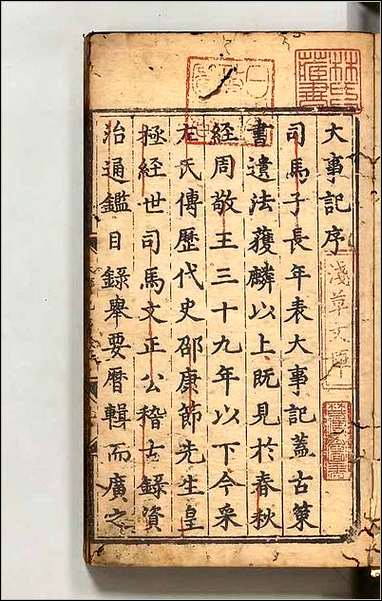 大事記序
司馬子長年表大事記蓋古策
書遺法獲麟以上既見於春秋
經周敬王三十九年以下今采
左氏傳歷代史邵康節先生皇
極經世司馬文正公稽古錄資
治通鑑目錄舉要曆輯而廣之
林氏藏書
淺草文庫